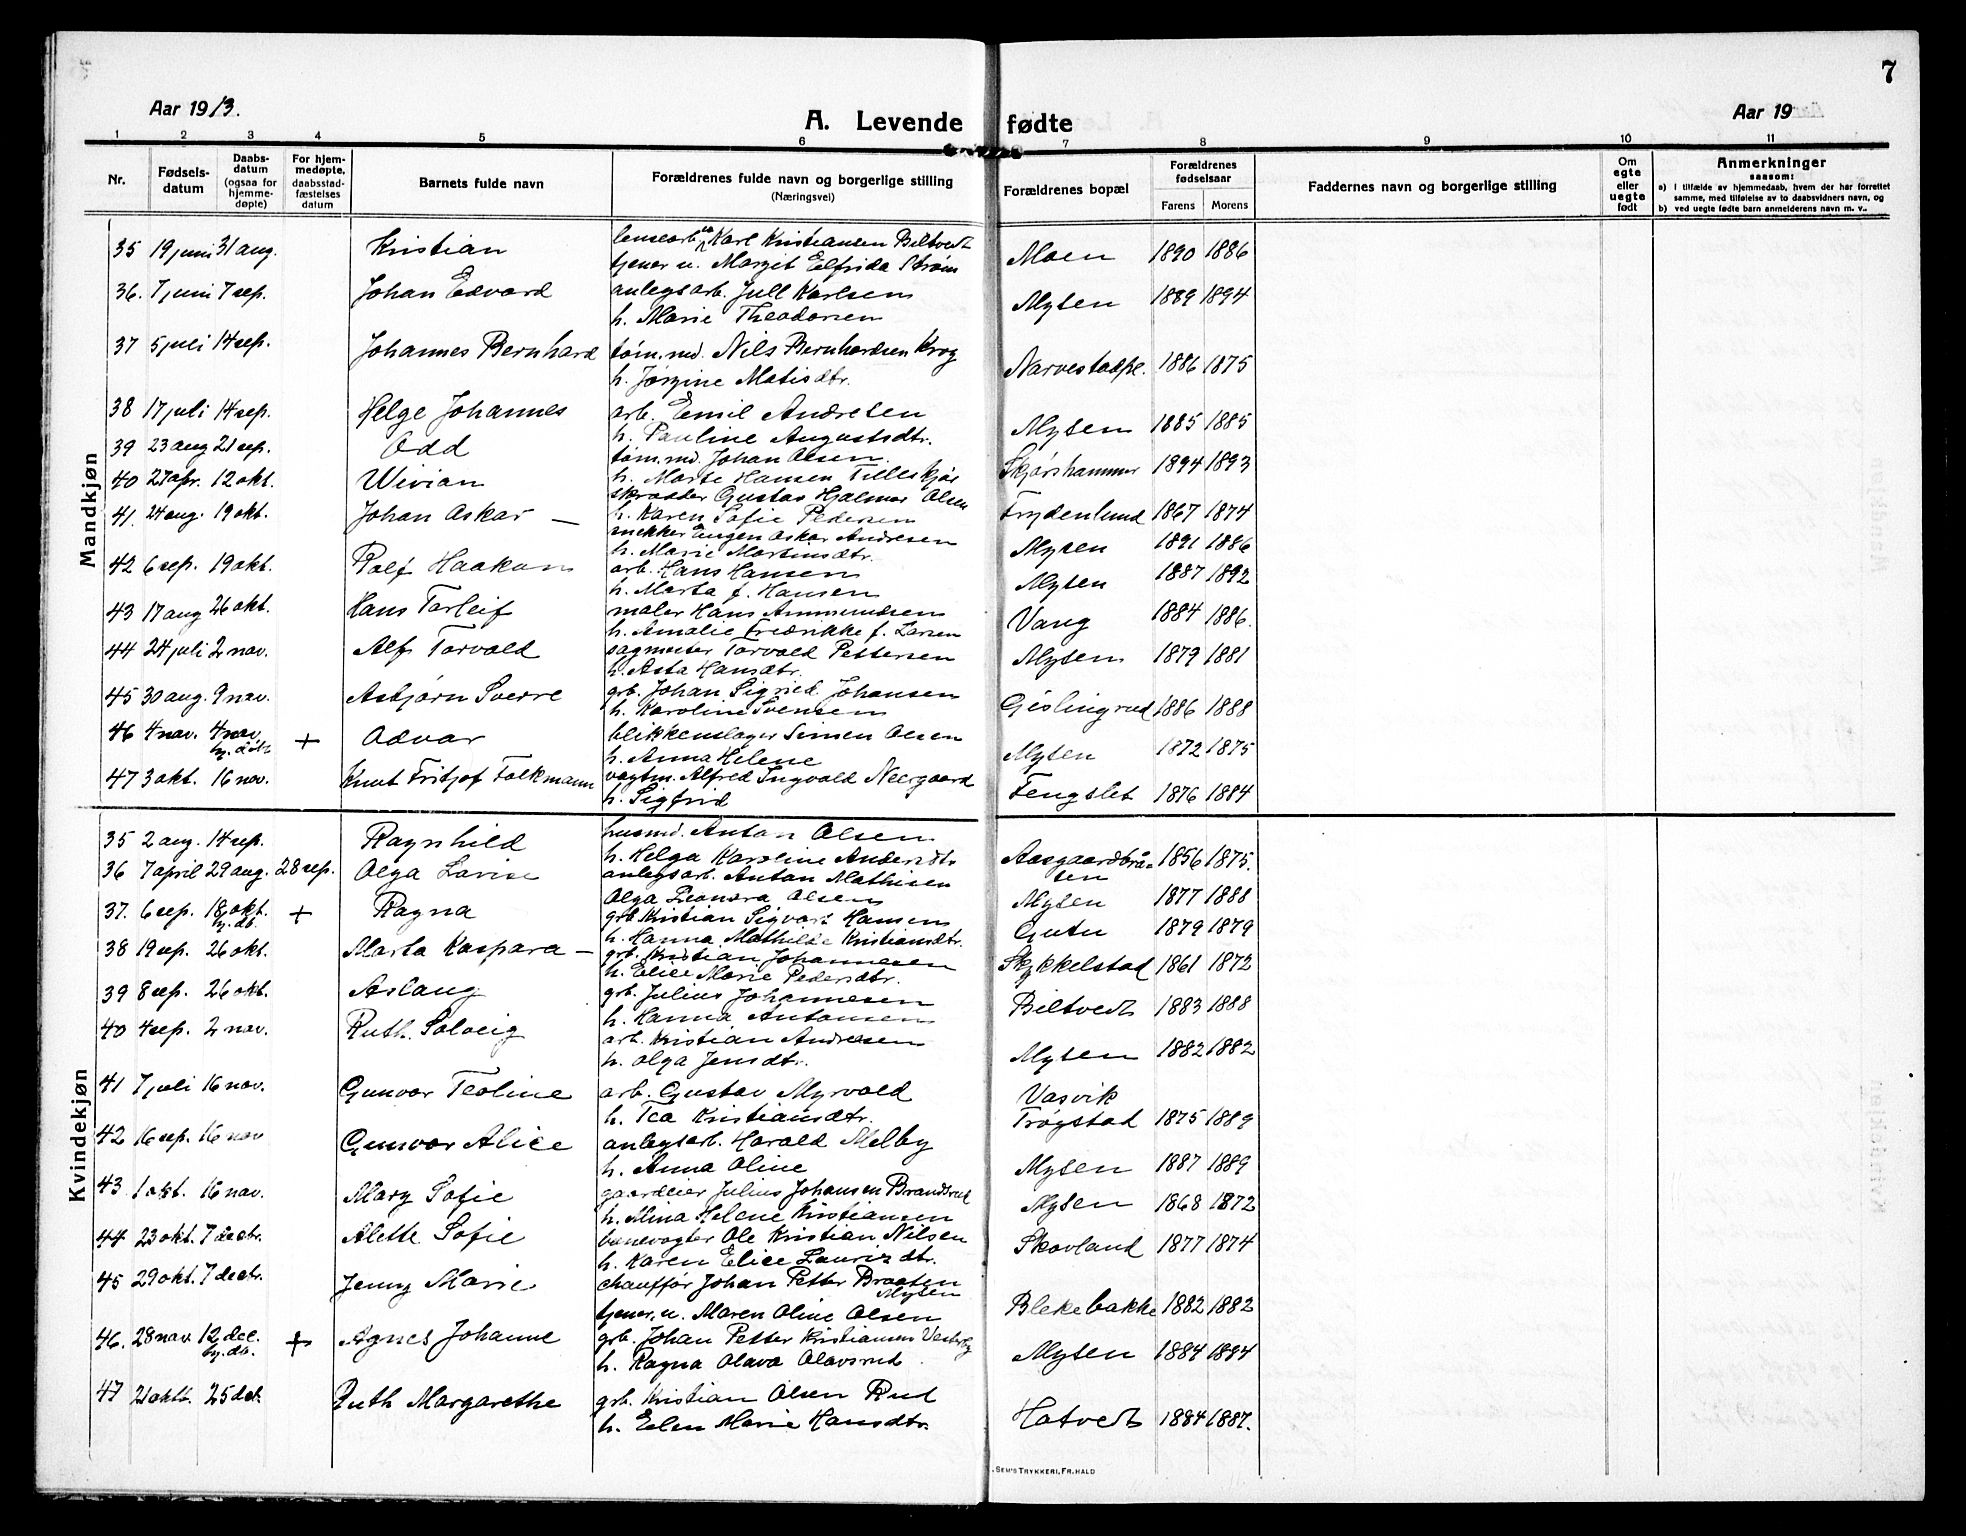 7
Aar 1913.
A. Levende fødte
Aar 19
1 2 3 4 5 6 7 8 9 10 11
Nr.
Fødsels-
datum
Daabs-
datum
(ogsaa for
hjemme-
døpte)
For hjem-
medøpte,
daabsstad-
fæstelses
datum
Barnets fulde navn
Forældrenes fulde navn og borgerlige stilling
(Næringsvei)
Forældrenes bopæl
Forældrenes
fødselsaar
Farens Morens
Faddernes navn og borgerlige stilling
Om
egte
eller
uegte
født
Anmerkninger
sansom:
a) i tilfælde av hjemmedaab, hvem der har forrettet
samme, med tilføielse av to daabsvidners navn, og
b) ved uegte fødte barn anmelderens navn m. v..
Mandkjøn
35 19 juni 31 aug. Kristian Karl Kristiansen Biltvedt Moen 1890 1886
tjener u. Margit Elfrida Strøm
36. 7 juni 7 sep. Johan Edvard anlegsarb. Jull Karlsen Mysen 1889 1894
h. Marie Theodorsen
37 5 juli 14 sep. Johannes Bernhard tøm.md. Nils Bernhardsen Krog Narvestadpl. 1886 1875
h. Jørgine Matisdtr.
38 17 juli 14 sep. Helge Johannes arb. Emil Andresen Mysen 1885 1885
h. Pauline Augustsdtr.
39 23 aug 21 sep. Odd tøm.md. Johan Olsen Skjørshammer 1894 1893
h. Marte Hansen Tilleskjør
40 27 apr. 12 okt. Wivian skrædder Gustav Hjalmar Olsen Frydenlund 1867 1874
h. Karen Sofie Pedersen
41. 24 aug. 19 okt. Johan Oskar — snekker Eugen Oskar Andresen Mysen 1891 1886
h. Marie Martinsdtr.
42 6 sep. 19 okt. Rolf Haakon arb. Hans Hansen Mysen 1887 1892
h. Marta f. Hansen
43 17 aug 26 okt. Hans Torleif maler Hans Ammundsen Vang 1884 1886.
h. Amalie Fredrikke f. Larsen
44 24 juli 2 nov. Alf Torvald sagmester Torvald Pettersen Mysen 1879 1881
h. Asta Hansdtr.
45 30 aug. 9 nov. Asbjørn Sverre grb. Johan Sigried Johansen Gislingrud 1886 1888
h. Karoline Svensen
46 4 nov. 4 nov. + Odvar blikkenslager Simen Olsen Mysen 1872 1875
hj. døbt
h. Anna Helene
47 3 okt. 16 nov. Knut Fritjof Folkmann vagtm. Alfred Ingvald Neergaard Fengslet 1876 1884
h. Sigfrid
Kvindekjøn
35 2 aug. 14 sep. Ragnhild husmd. Anton Olsen Aasgaardbrå- 1856 1875.
h. Helga Karoline Andersdtr. ten
36 7 april 29 aug. 28 sep. Olga Lovise anlegsarb. Anton Mathisen Mysen 1877 1888
Olga Leonora Olsen
37. 6 sep. 18 okt. + Ragna grb Kristian Sigvart Hansen Gutu 1879 1879
hj. db.
h. Hanna Mathilde Kristiansdtr.
38 19 sep. 26 okt. Marta Kaspara — grb. Kristian Johannesen Skykkelstad 1861 1872
h. Elise Marie Pedersdtr.
39 8 sep. 26 okt. Aslaug grb. Julius Johannesen Biltvedt 1883 1888
h. Hanna Antonsen
40 4 sep. 2 nov. Ruth Solveig arb. Kristian Andresen Mysen 1882 1882
h. Olga Jensdtr.
41 7 juli 16 nov. Gunvor Teoline arb. Gustav Myrvold Vasvik
h. Tea Kristiansdtr. Trøgstad 1875 1889
42 16 sep. 16 nov Gunvor Alice anlegsarb. Harald Melby Mysen 1887 1889
h. Anna Oline
43 1 okt. 16 nov. Mary Sofie gaardeier Julius Johansen Brandsrud Mysen 1868 1872
h. Mina Helene Kristiansen
44 23 okt. 7 decbr. Alette Sofie banevogter Ole Kristian Nilsen Skovland 1877 1874
h. Karen Elise Lauriz dtr.
45 29 okt. 7 decbr. Jenny Marie chauffør Johan Petter Braaten
Mysen
tjener, u. Maren Oline Olsen Blekebakke 1882 1882
46. 28 nov. 12 dec. + Agnes Johanne grb. Johan Petter Kristiansen Vestby Mysen 1884 1894
hj. db.
h. Ragna Olava Olavsrud
47 21 okt. 25 dec. Ruth Margarethe grb. Kristian Olsen Rud Hotvedt 1884 1887.
h. Elen Marie Hansdtr.
SEM'S TRYKKERI, FR.HALD